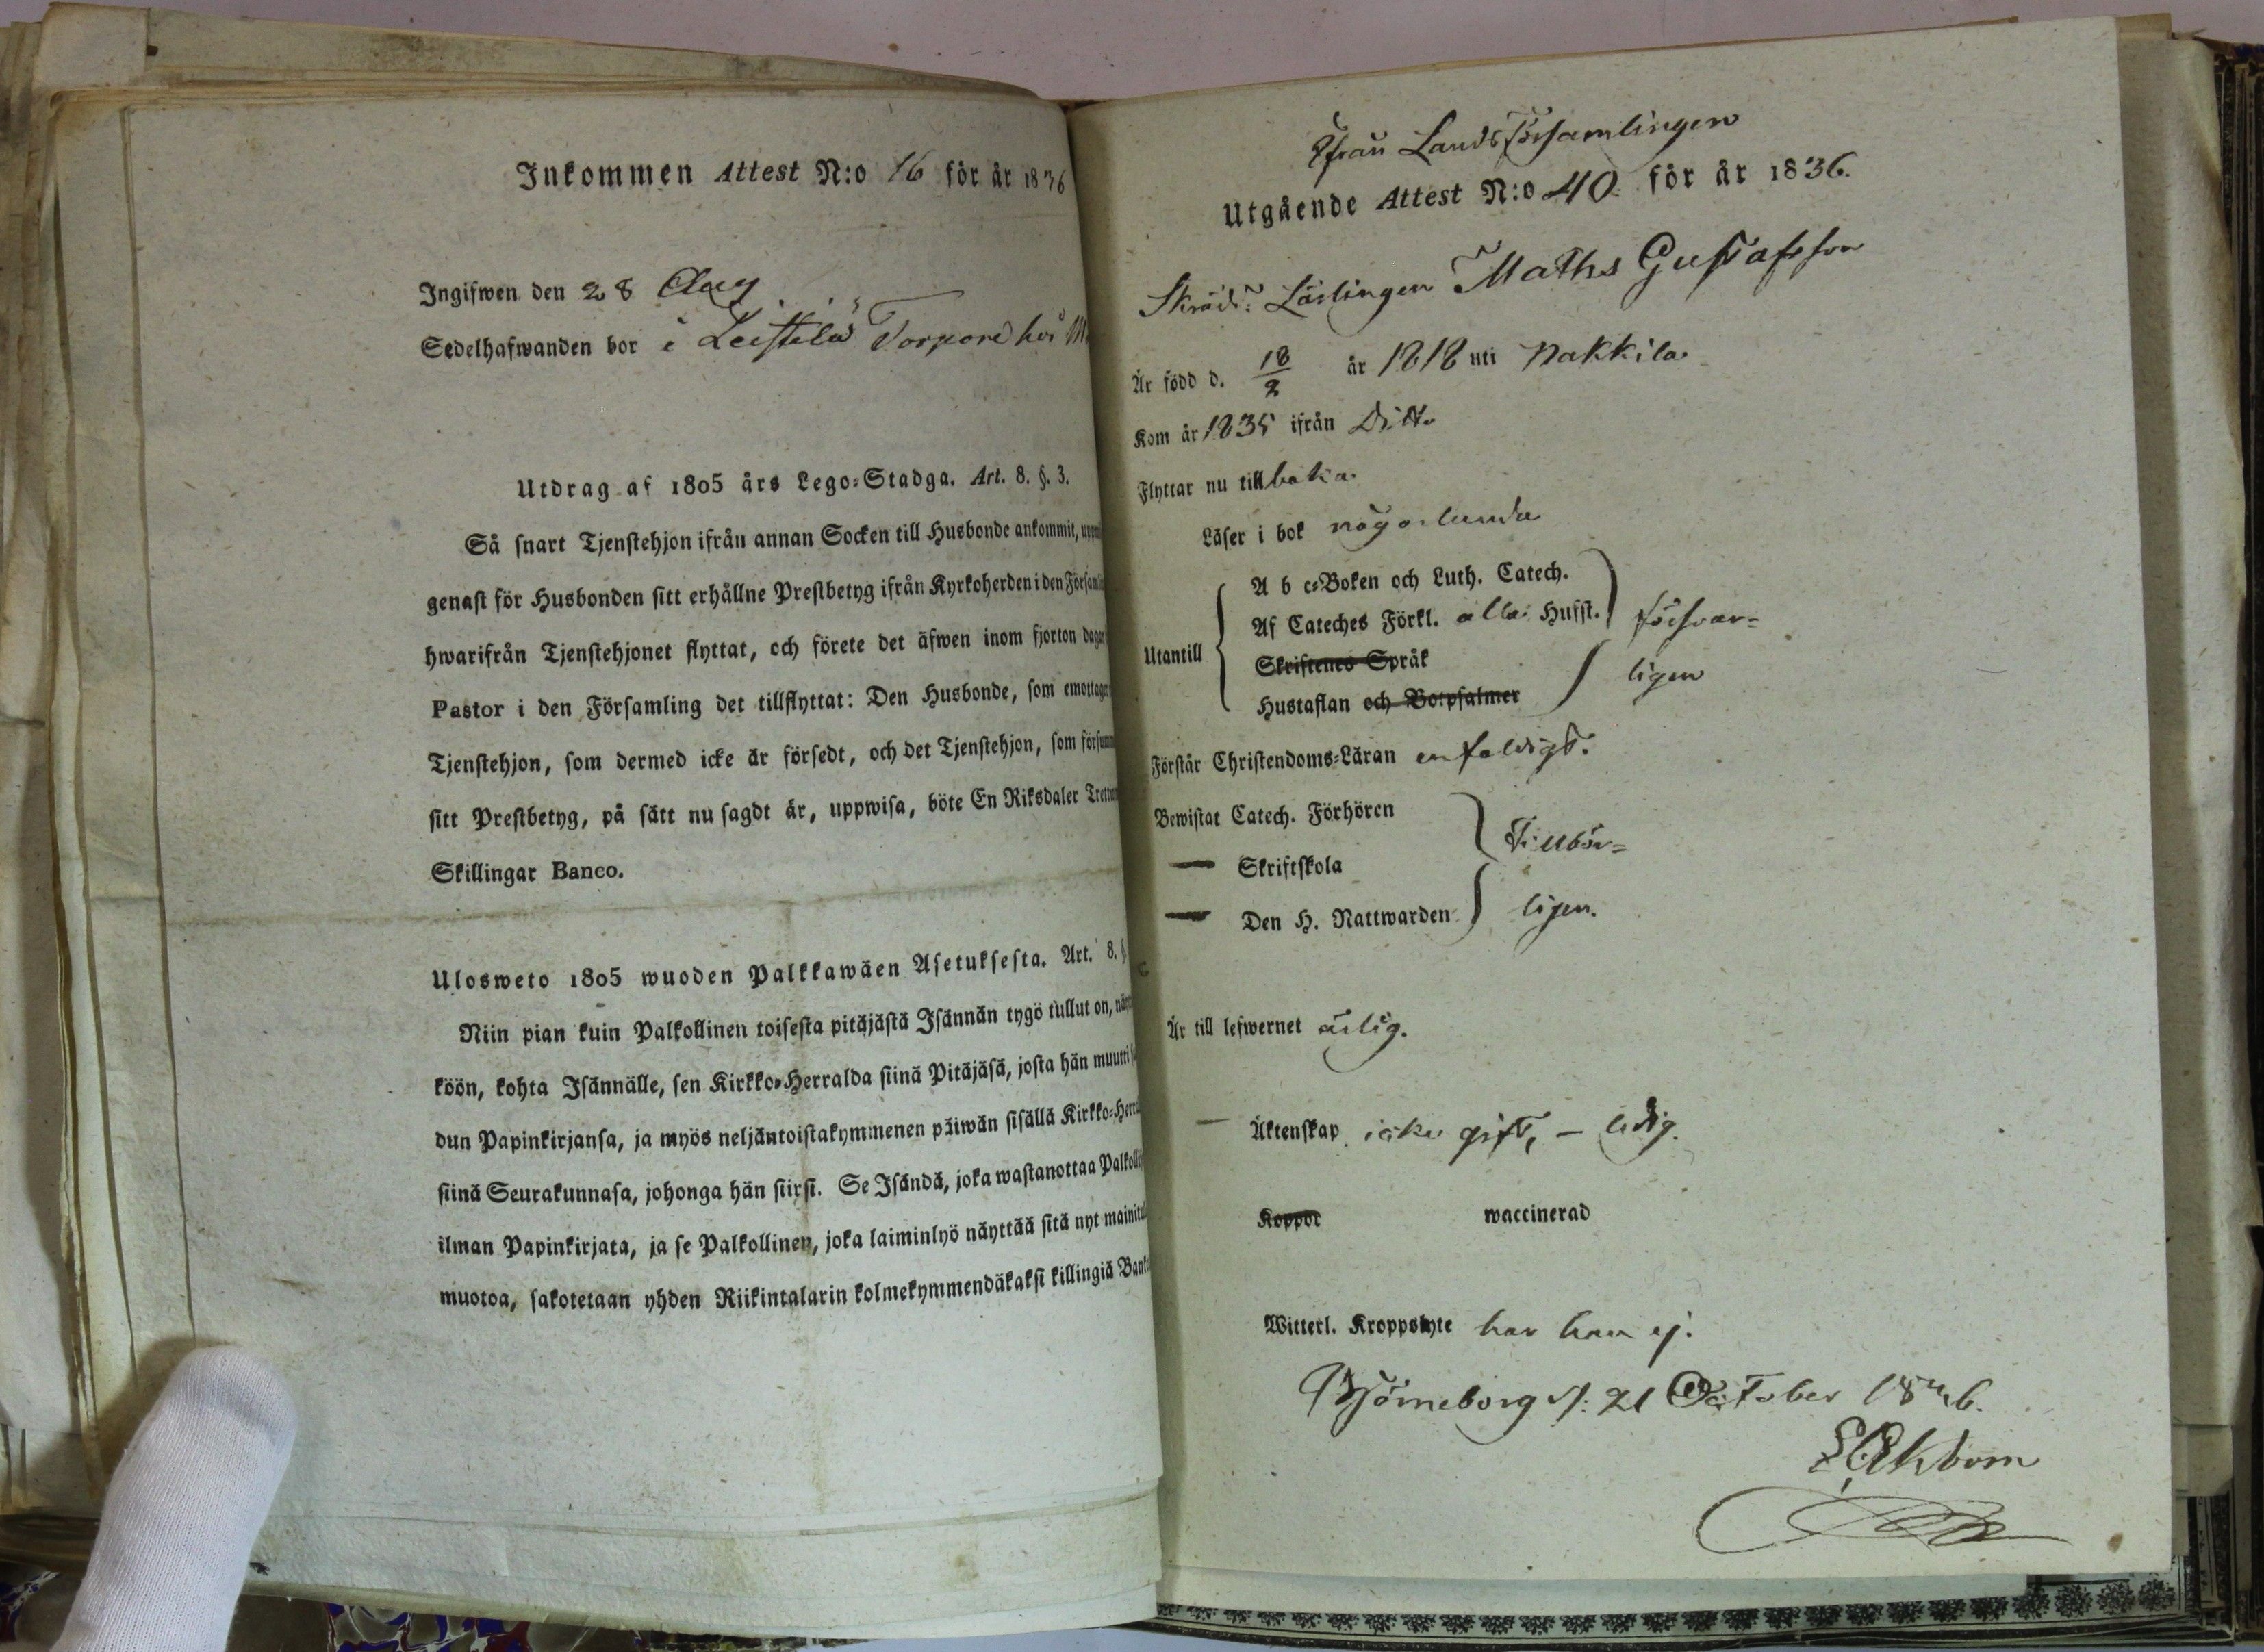 Inkommen Attest N:o 16 för år 1836
Ingifwen den 28 Aug
Sedelhafwanden bor i Leistilä Torpare hos
Utdrag af 1805 års Lego-Stadga. Art. 8. §. 3.
Så snart Tjenstehjon ifrån annan Socken till Husbonde ankommit,
genast för Husbonden sitt erhållne Prestbetyg ifrån Kyrkoherden i den
hwarifrån Tjenstehjonet flyttat, och förete det äfwen inom fjorton
Pastor i den Församling det tillflyttat: Den Husbonde, som
Tjenstehjon, som dermed icke är försedt, och det Tjenstehjon, som
sitt Prestbetyg, på sätt nu sagdt är, uppwisa, böte En Riksdaler
Skillingar Banco.
Ulosweto 1805 wuoden Palkkawäen Asetuksesta. Art. 8. §
Niin pian kuin Palkollinen toisesta pitäjästä Isännän tygö tullut on,
köön, kohta Isännälle, sen Kirkko-Herralda siinä Pitäjäsä, josta hän muutti
dun Papinkirjansa, ja myös neljäntoistakymmenen päiwän sisällä
siinä Seurakunnasa, johonga hän siirsi. Se Isändä, joka wastanottaa
ilman Papinkirjata, ja se Palkollinen, joka laiminlyö näyttää sitä nyt
muotoa, sakotetaan yhden Riikintalarin kolmekymmendäkaksi killingiä
Ifrån Landsförsamlingen
Utgående Attest N:o 40. för år 1836.
Skräd: Lärlingen Maths Gustafsson
Är född d. 18/2 år 1818 uti Nakkila
Kom år 1835 ifrån Ditto
Flyttar nu tillbaka.
Läser i bok någorlunda
A b c-Boken och Luth. Catech.
Af Cateches Förkl. alla Hufst. försvar=
Utantill Skriftenes Språk
ligen
Hustaflan och Botpsalmer
Förstår Christendoms-Läran enfaldigt.
Bewistat Catech. Förhören
Tillbör=
— Skriftskola
— Den H. Nattwarden ligen.
Är till lefwernet ärlig.
— Äktenskap icke gift, — ledig.
Koppor waccinerad
Witterl. Kroppslyte har han ej.
Björneborg d: 21 October 1836.
Ekbom